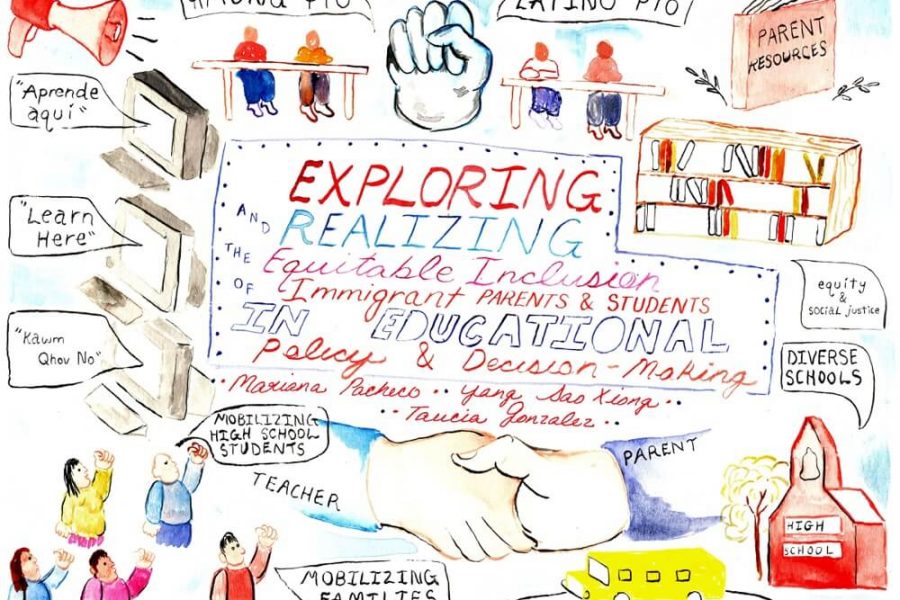 HMONG PTO
LATINO PTO
PARENT
RESOURCES
"Aprende
aquí"
"Learn
Here"
"Kawm
Qhov No"
EXPLORING
AND REALIZING
THE Equitable Inclusion
OF Immigrant PARENTS & STUDENTS
IN EDUCATIONAL
Policy & Decision-Making
Mariana Pacheco ·· Yang Sao Xiong ··
·· Taucia Gonzalez ··
equity
&
social justice
DIVERSE
SCHOOLS
MOBILIZING
HIGH SCHOOL
STUDENTS
TEACHER
PARENT
HIGH
SCHOOL
MOBILIZING
FAMILIES